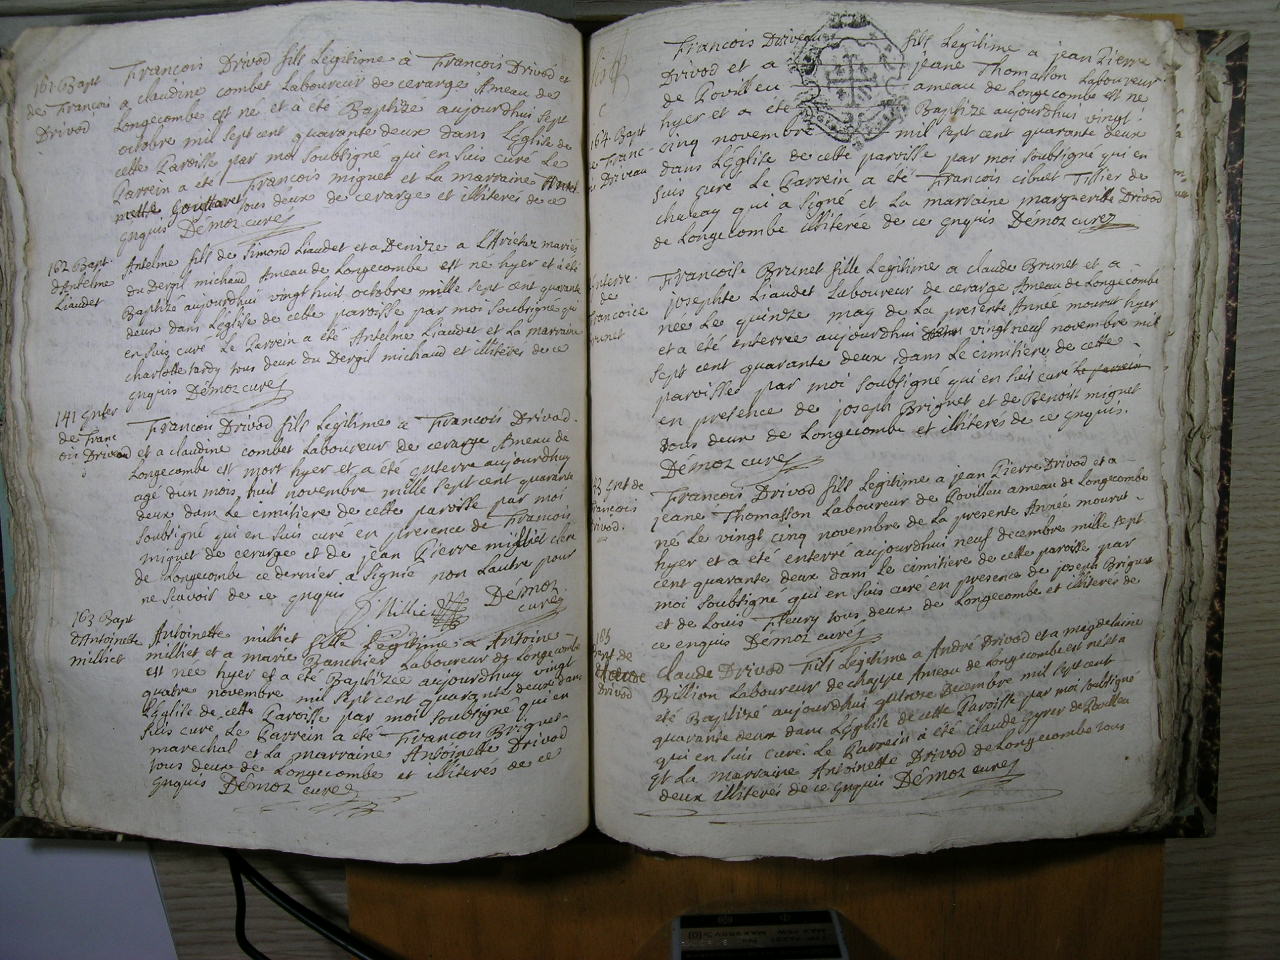 161 Bapt
de François
Drivod
François Drivod fils Legitime à François Drivod et
a claudine combet Laboureur de cerarge Ameau de
Longecombe est né et à été Baptize aujourdhuy sept
octobre mil sept cent quarante deux dans L'Eglise de
cette Paroisse par moi soubsigné qui en suis curé Le
Parrein a été François miguet et La marraine
Gouttaret tous deux de cerarge et illiteres de ce
gnquis Démoz curé
162 Bapt
d'Antelme
Liaudet
Antelme fils de Simond Liaudet et a Denize a mariés
du Dergil michaud Ameau de Longecombe est né hyer et a été
Baptize aujourdhuy vingt huit octobre mille sept cent quarante
deux dans L'Eglise de cette paroisse par moi Soubsigné qui
en suis curé Le Parrein a été Antelme Liaudet et La marraine
charlotte tardy tous deux du Dergil michaud et illiterés de ce
gnquis Démoz curé
141 Enter
de Franc
ois Drivod
François Drivod fils Legitime à François Drivod
et a claudine combet Laboureur de cerarge Ameau de
Longecombe est mort hyer et a été gnterré aujourdhuy
agé dun mois, huit novembre mille sept cent quarante
deux dans Le cimitiere de cette paroisse par moi
soubsigné qui en suis curé en presence de François
miguet de cerarge et de jean Pierre milliet
de Longecombe ce dernier a Signé non Lautre pour
ne scavoir de ce gnquis J Milliet Démoz
curé
163 Bapt
d'Antoinette
milliet
Antoinette milliet fille Legitime a Antoine
milliet et a marie Banchier Laboureur de Longecombe
est née hyer et a été Baptizée aujourdhuy vingt
quatre novembre mil sept cent quarante deux dans
L'Eglise de cette Paroisse par moi soubsigné qui en
suis curé Le Parrein a été François Briguet
marechal et La marraine Antoinette Drivod
tous deux de Longecombe et illiterés de ce
gnquis Démoz curé
164 Bapt
Franc
Driveau
François Driveau fils Legitime a jean Pierre
Drivod et a jeane Thomasson Laboureur
de Povilieu ameau de Longecombe est né
hyer et a été Baptize aujourdhuy vingt
cinq novembre mil sept cent quarante deux
dans L'Eglise de cette paroisse par moi soubsigné qui en
suis curé Le Parrein a été François cibuet Tissier de
chaley qui a Signé et La marraine marguerite Drivod
de Longecombe illiterée de ce gnquis Démoz curez
de
Francoise
Brunet
Françoise Brunet fille Legitime a claude Brunet et a
josephte Liaudet Laboureur de cerarge Ameau de Longecombe
née Le quinze may de La presente Année mourut hyer
et a été enterré aujourdhui vingt neuf novembre mil
sept cent quarante deux dans Le cimitiere de cette
paroisse par moi soubsigné qui en suis curé le parrein
en presence de joseph Briguet et de Benoist miguet
tous deux de Longecombe et illiterés de ce gnquis.
Démoz curé
Ent de
François
Drivod.
François Drivod fils Legitime a jean Pierre Drivod et a
jeane Thomasson Laboureur de Povillieu ameau de Longecombe
né Le vingt cinq novembre de La presente Année mourut
hyer et a été enterré aujourdhuy neuf decembre mille sept
cent quarante deux dans Le cimitiere de cette paroisse par
moi soubsigné qui en suis curé en presence de joseph Briguet
et de Louis Fleury tous deux de Longecombe et illiterés de
ce enquis Démoz curé
165
Bapt de
claude
Drivod
claude Drivod Fils Legitime a André Drivod et a magdelaine
Billion Laboureur de chappe Ameau de Longecombe est né et a
eté Baptizé aujourdhui quinze Decembre mil sept cent
quarante deux dans L'Eglise de cette Paroisse par moi soubsigné
qui en suis curé. Le Parrein a été claude
et La marraine Antoinette Drivod de Longecombe tous
deux illiterés de ce gnquis Démoz curé